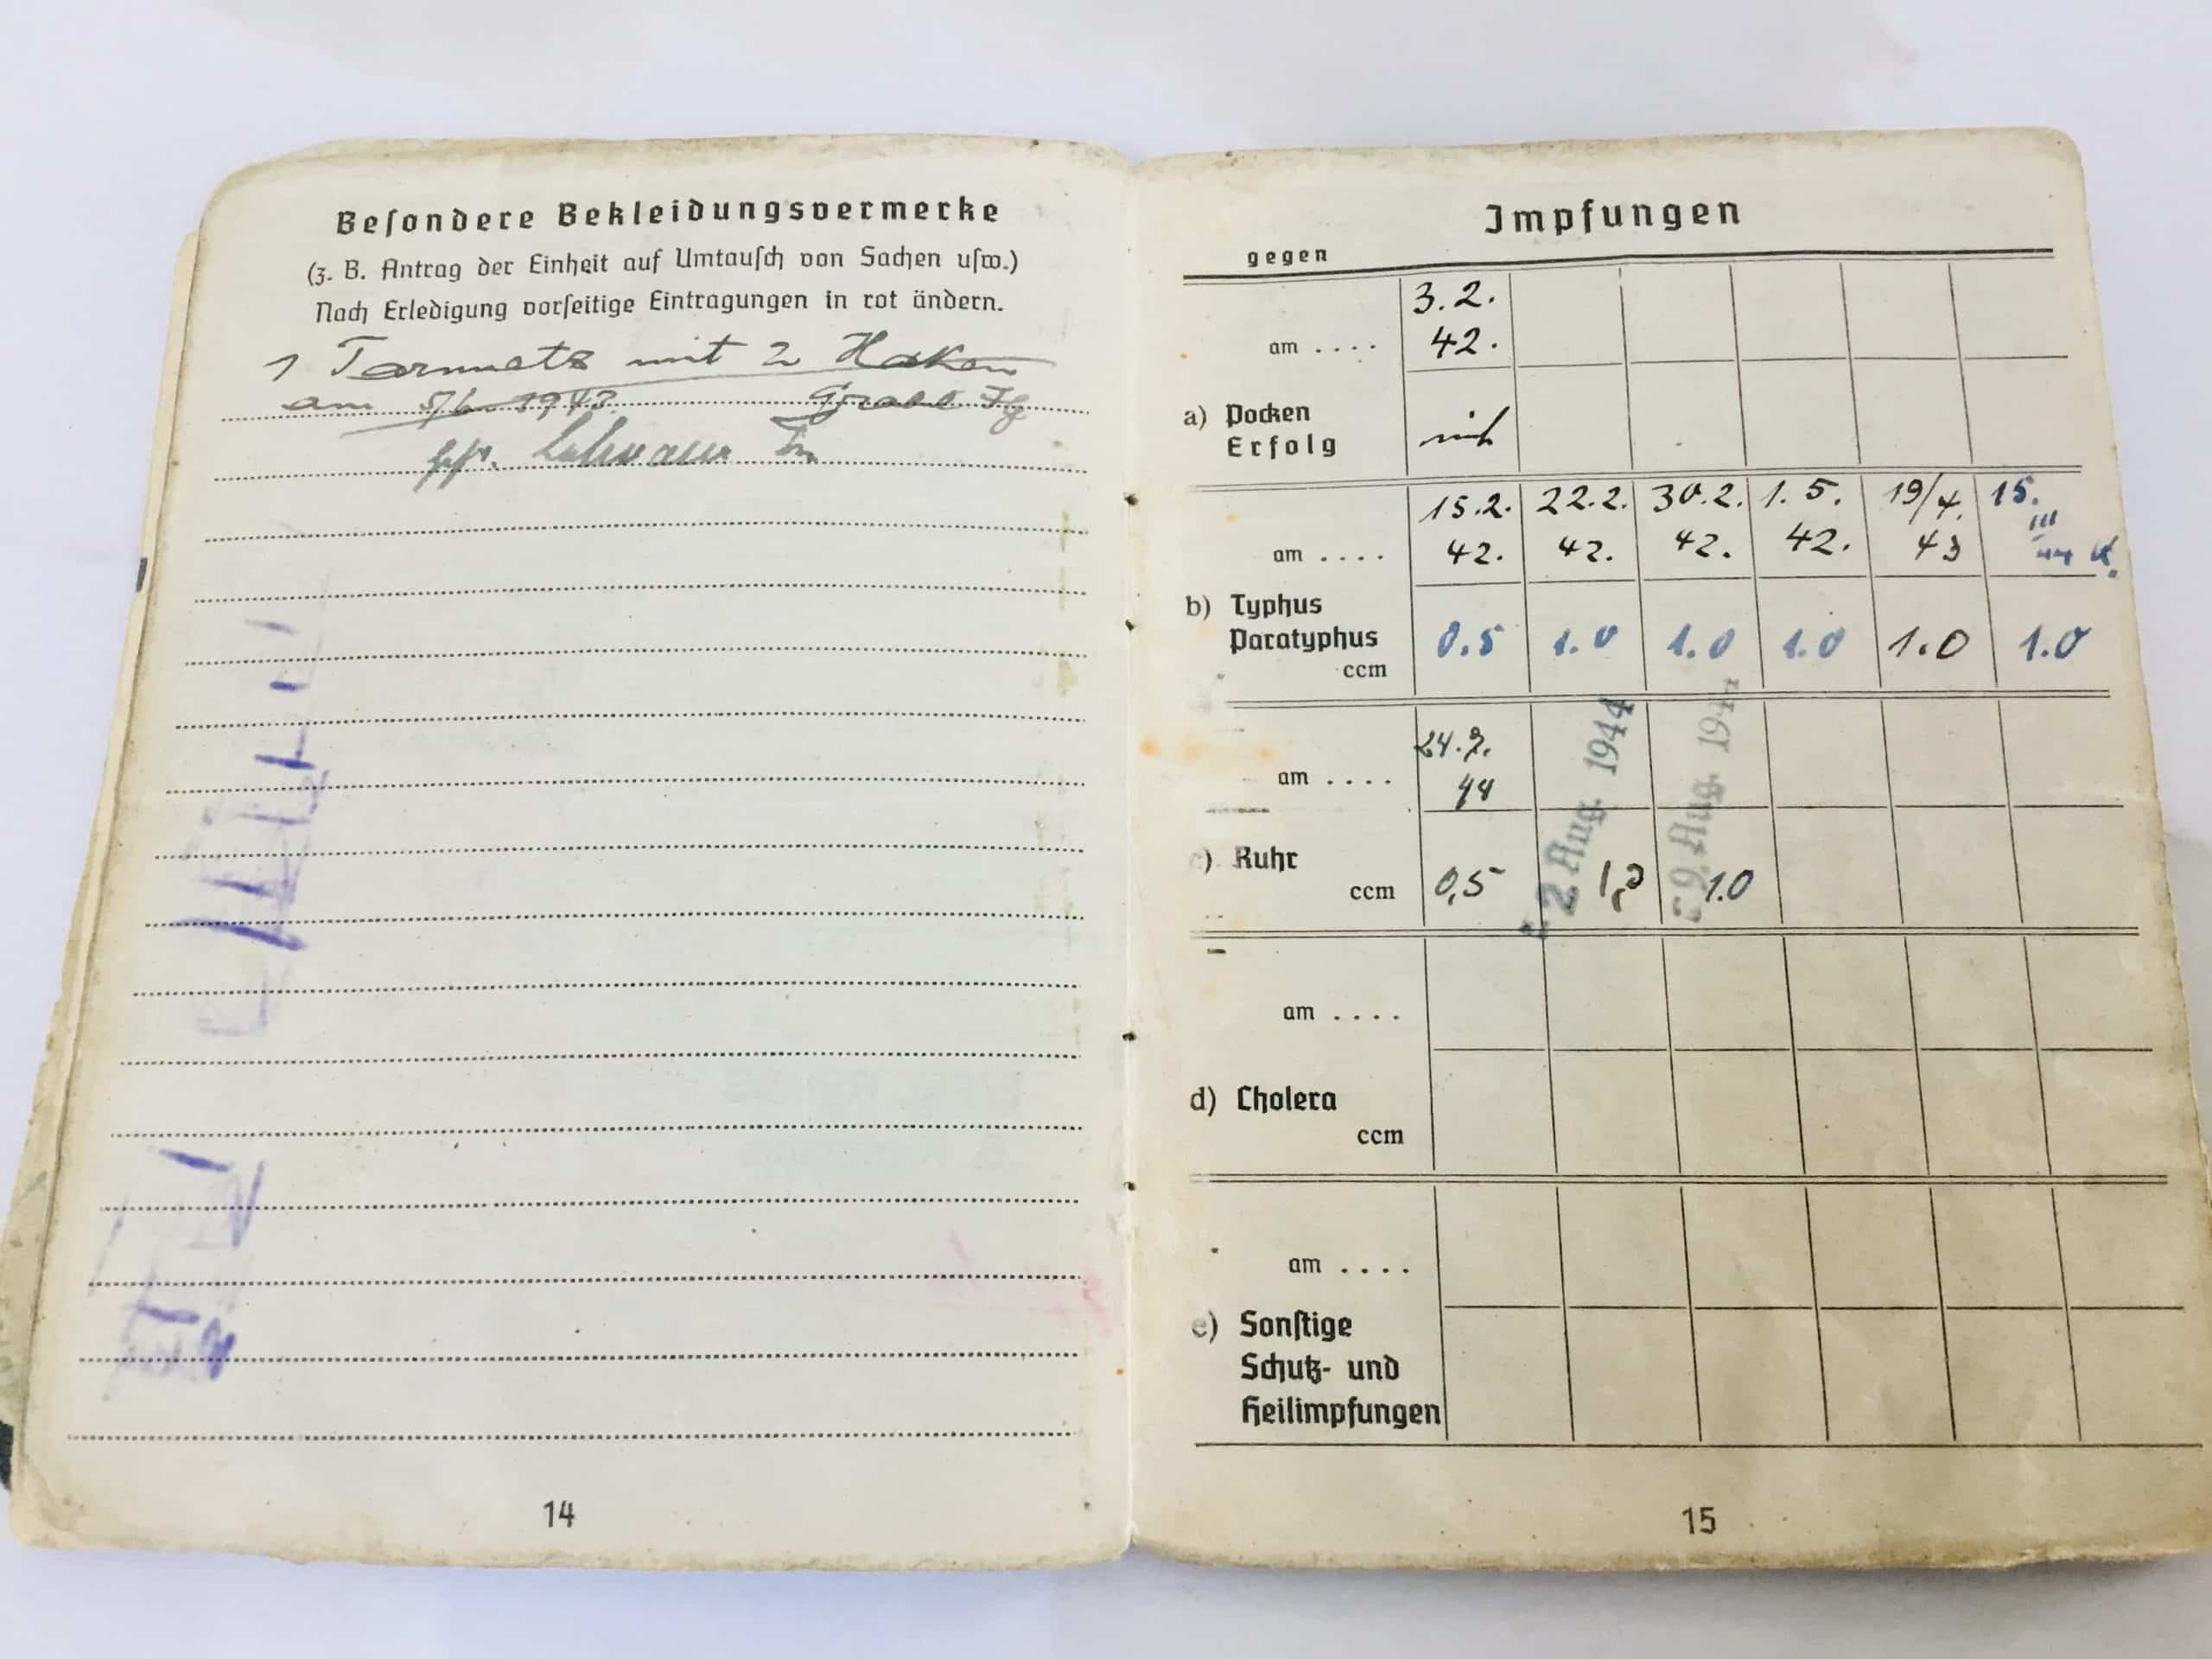 Besondere Bekleidungsvermerke
(z. B. Antrag der Einheit auf Umtausch von Sachen usw.)
Nach Erledigung vorseitige Eintragungen in rot ändern.
1 Tarnnetz mit 2 Haken
am 5/6 1943
14
Impfungen
gegen
3.2.
am .... 42.
a) Pocken
Erfolg
15.2. 22.2. 30.2. 1.5. 19/4. 15.
III
am .... 42. 42. 42. 42. 43 44
b) Typhus
Paratyphus 0.5 1.0 1.0 1.0 1.0 1.0
ccm
am .... 44
2. Aug. 1944
9. Aug. 194
c) Ruhr
ccm 0,5 1,0 1.0
am ....
d) Cholera
ccm
am ....
e) Sonstige
Schutz- und
Heilimpfungen
15